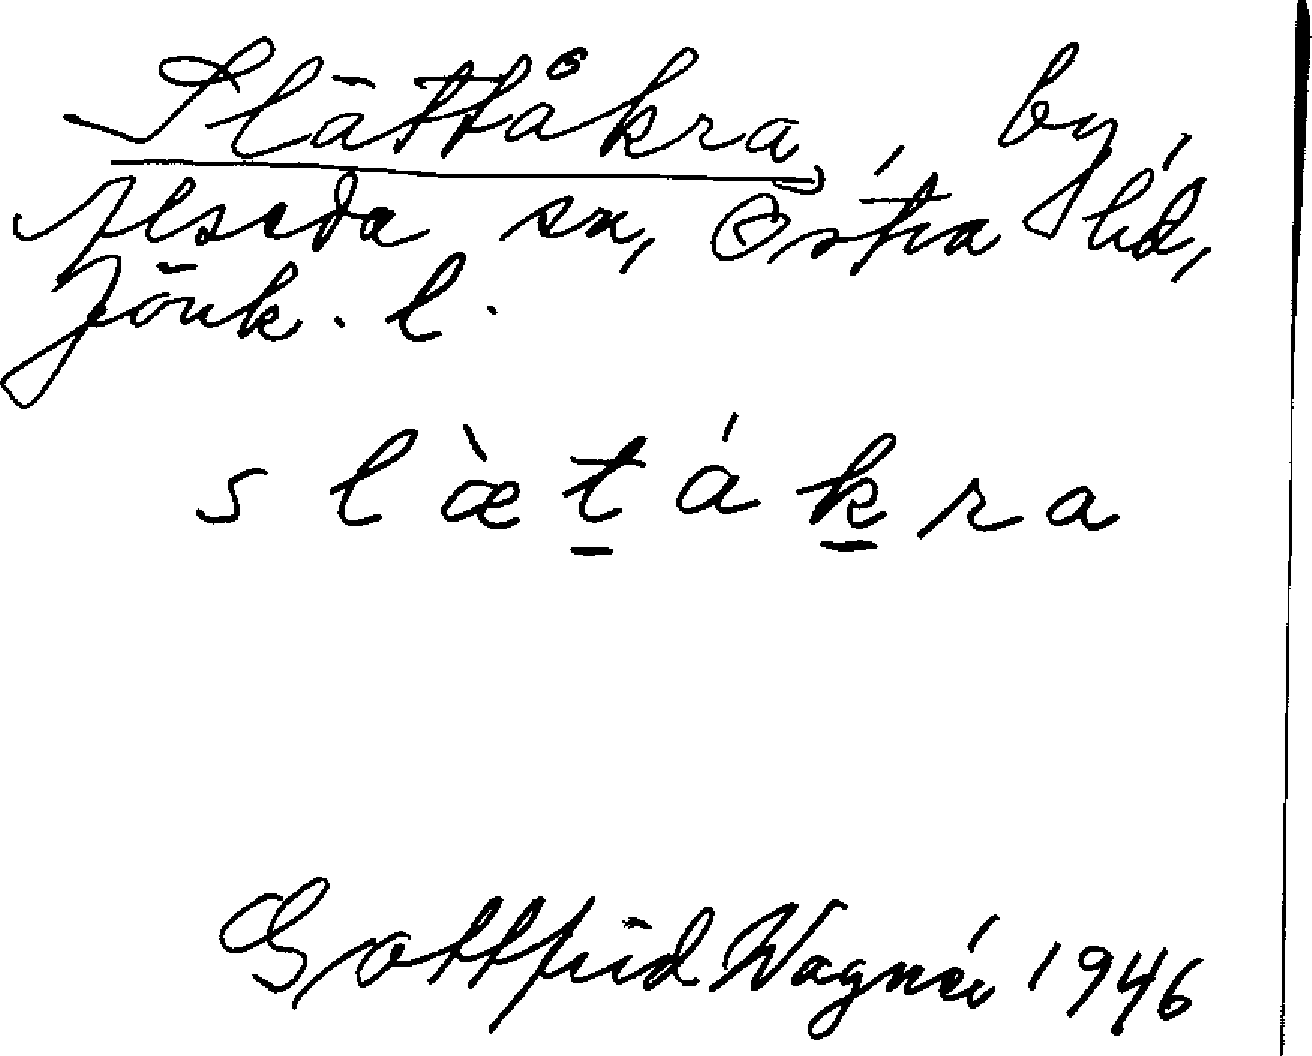 Slättåkra, by,
Alseda sn, Östra hd,
Jönk. l.
s l æ̀ t̲ á k̲ r a
Gottfrid Wagnér 1946